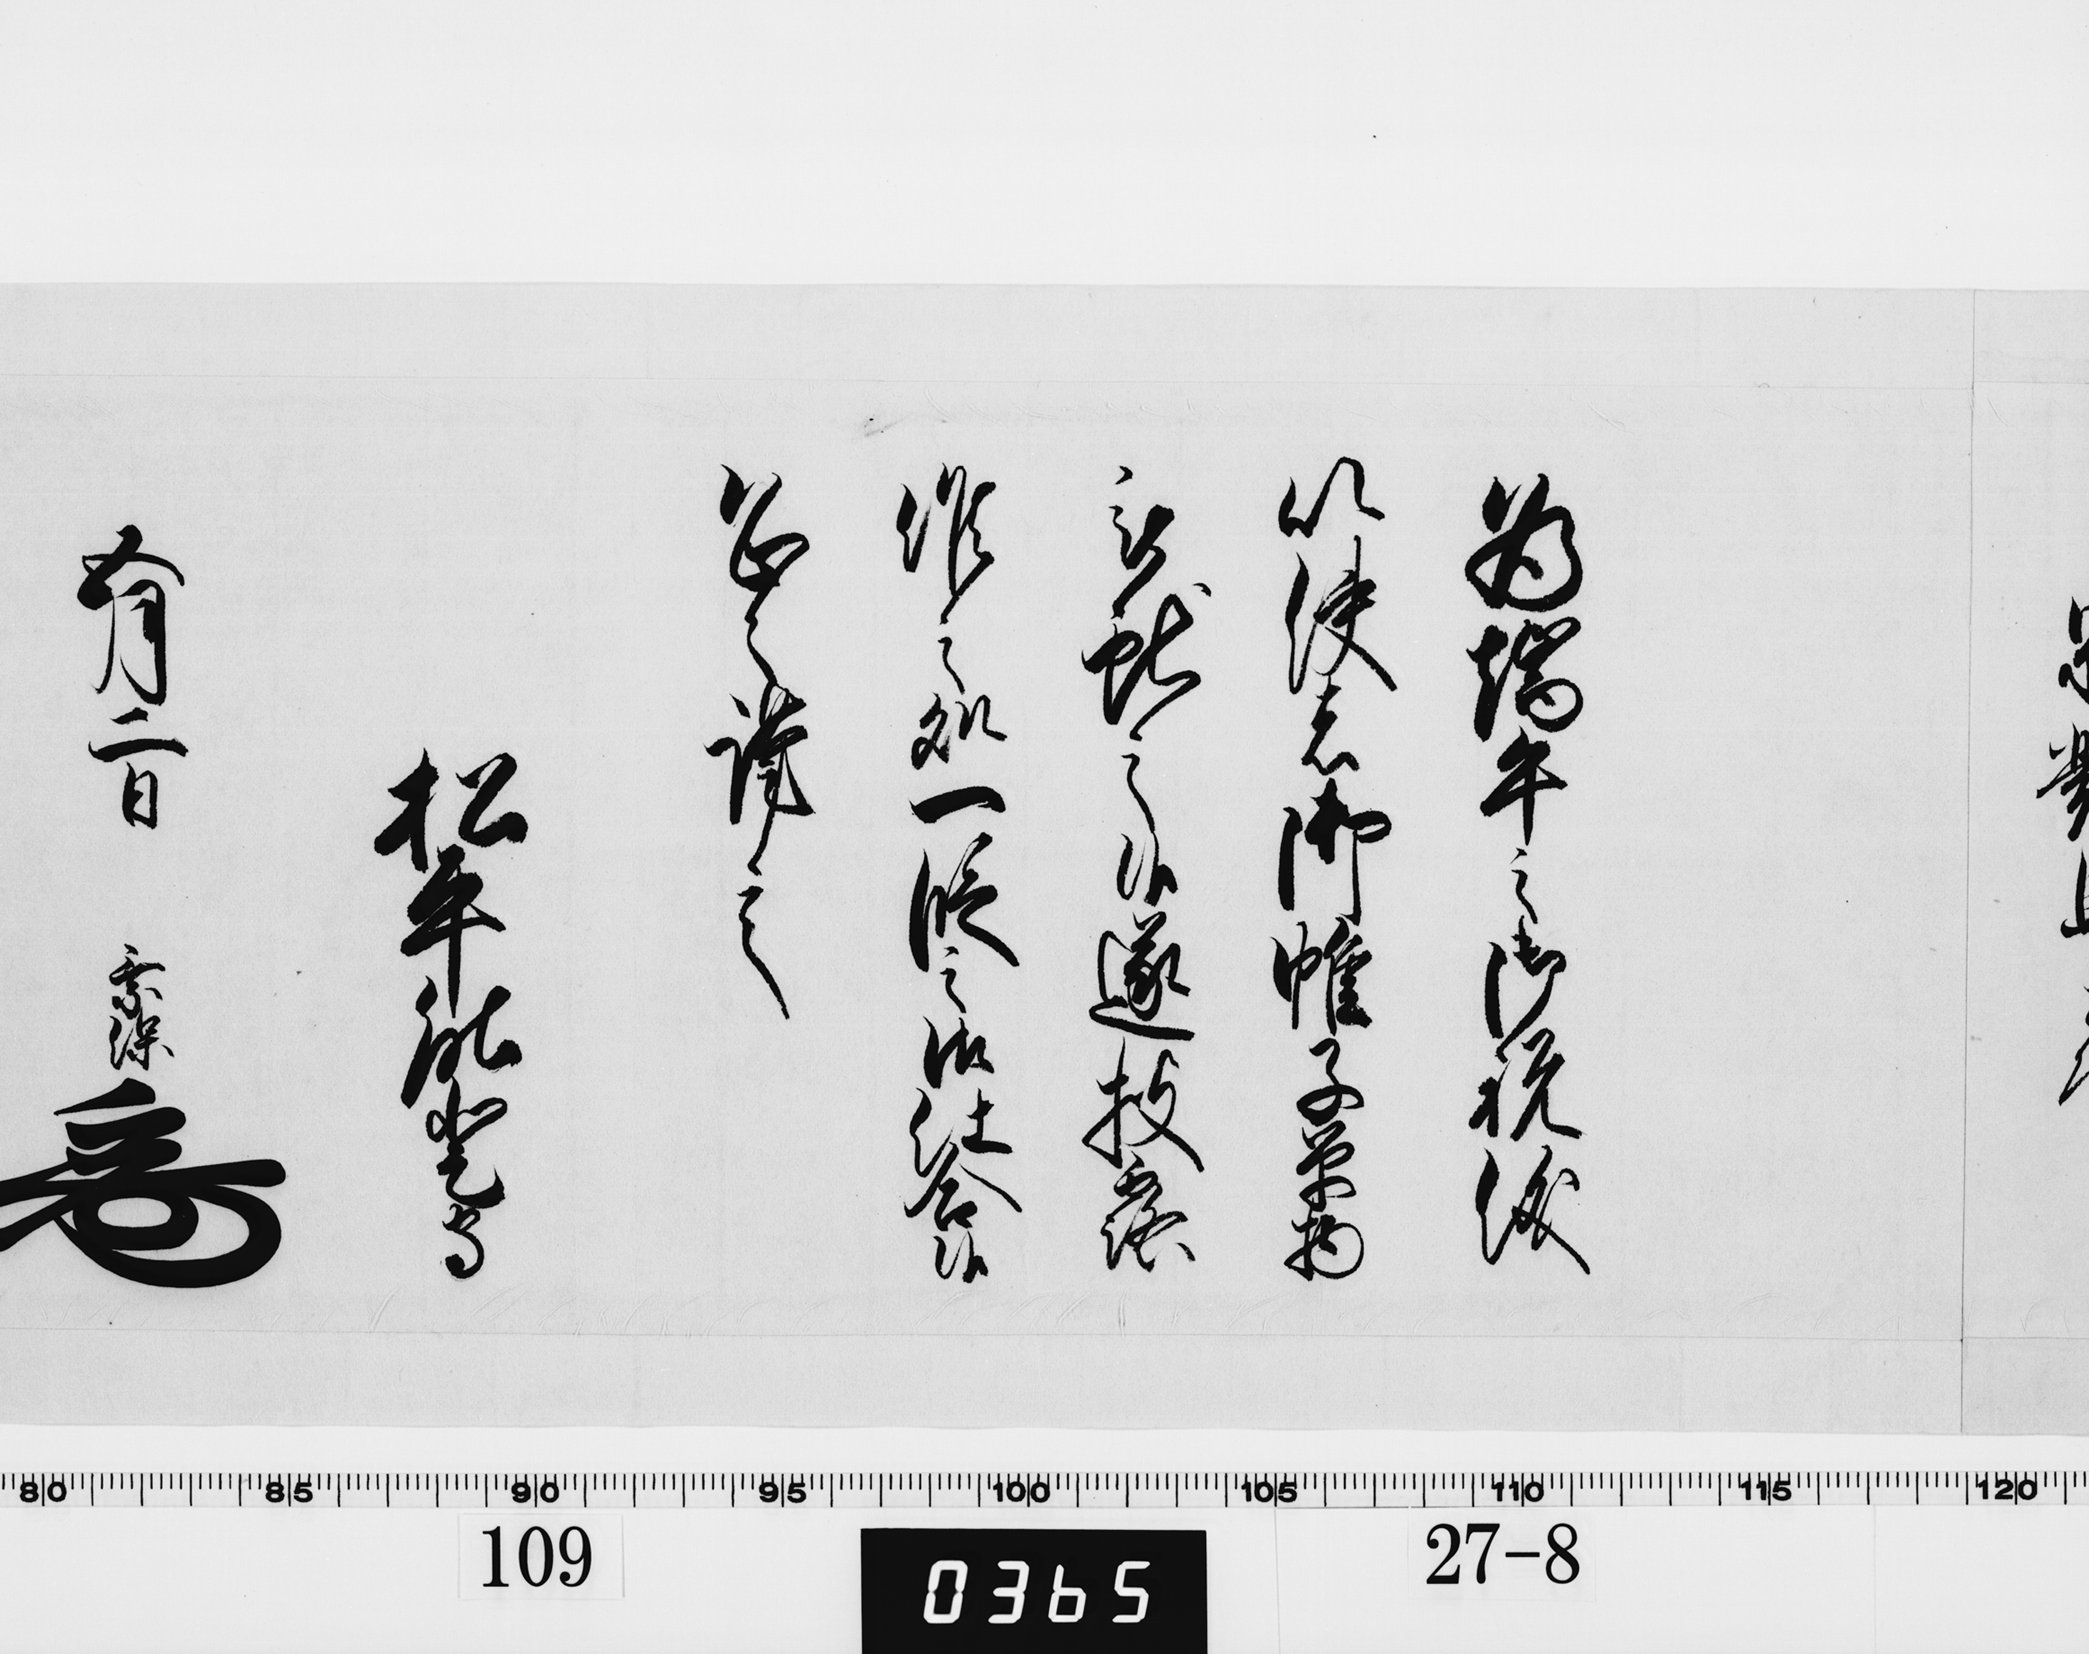 為端午之御祝儀
以使者御帷子單物
被献之候遂披露
之処一段之御仕合候
恐々謹言
松平能登守
五月二日 乗保
80 85 90 95 100 105 110 115 120
109 0365 27-8